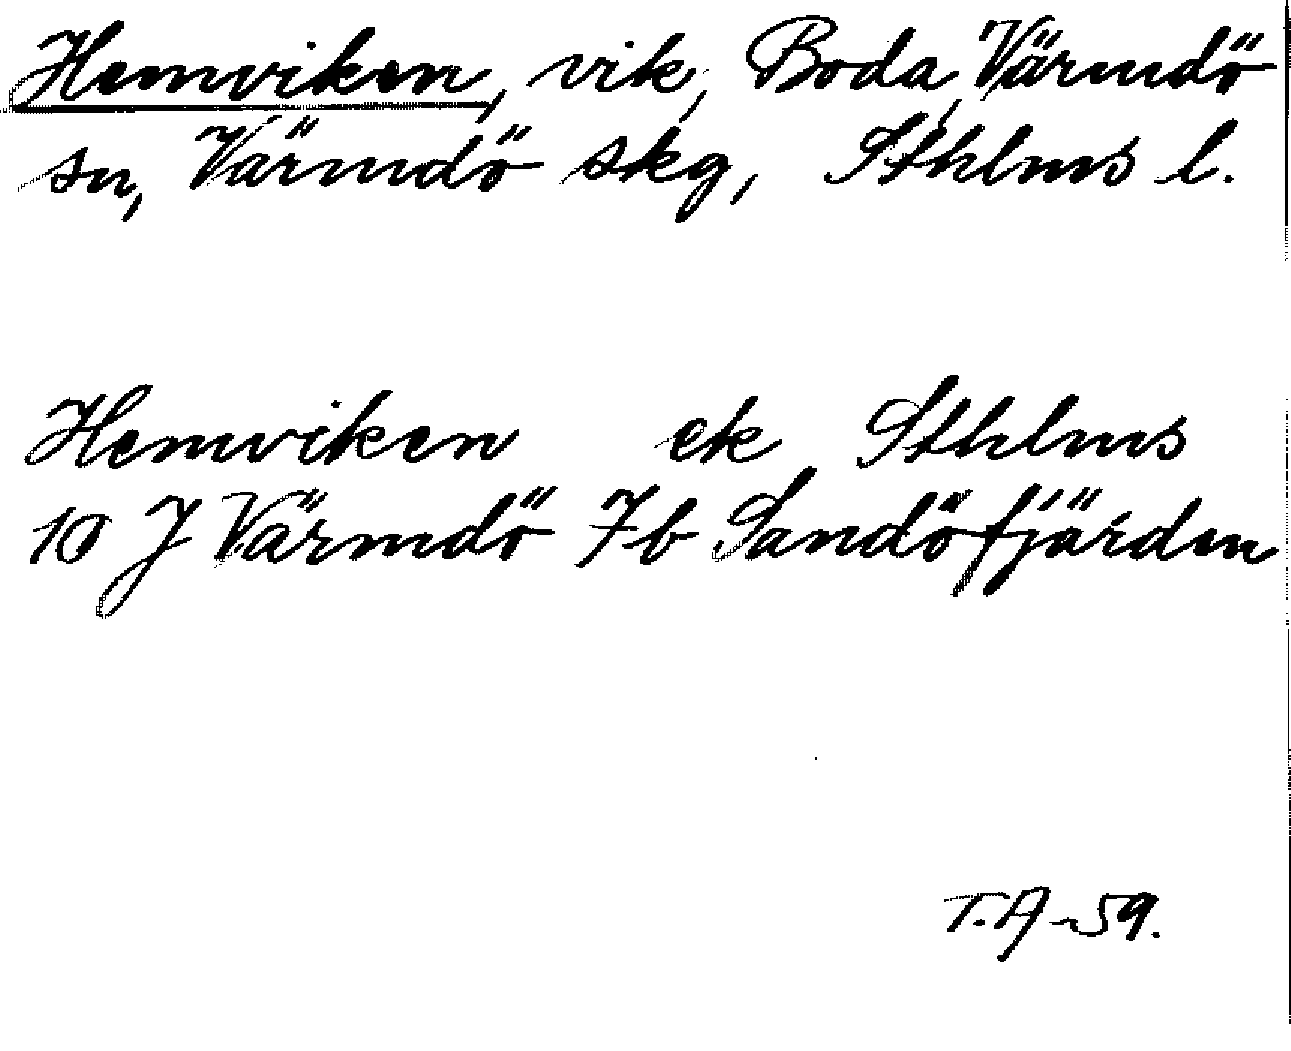 Hemviken, vik, Boda, Värmdö
sn, Värmdö skg, Sthlms l.
Hemviken ek Sthlms
10 J Värmdö 7b Sandöfjärden
T.A-59.